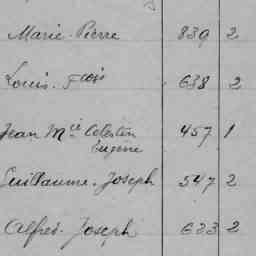 Marie. Pierre 839 2
Louis. Fçois 638 2
Jean Mie Célestin 457 1
Eugène
Guillaume. Joseph 547 2
Alfred. Joseph 633 2